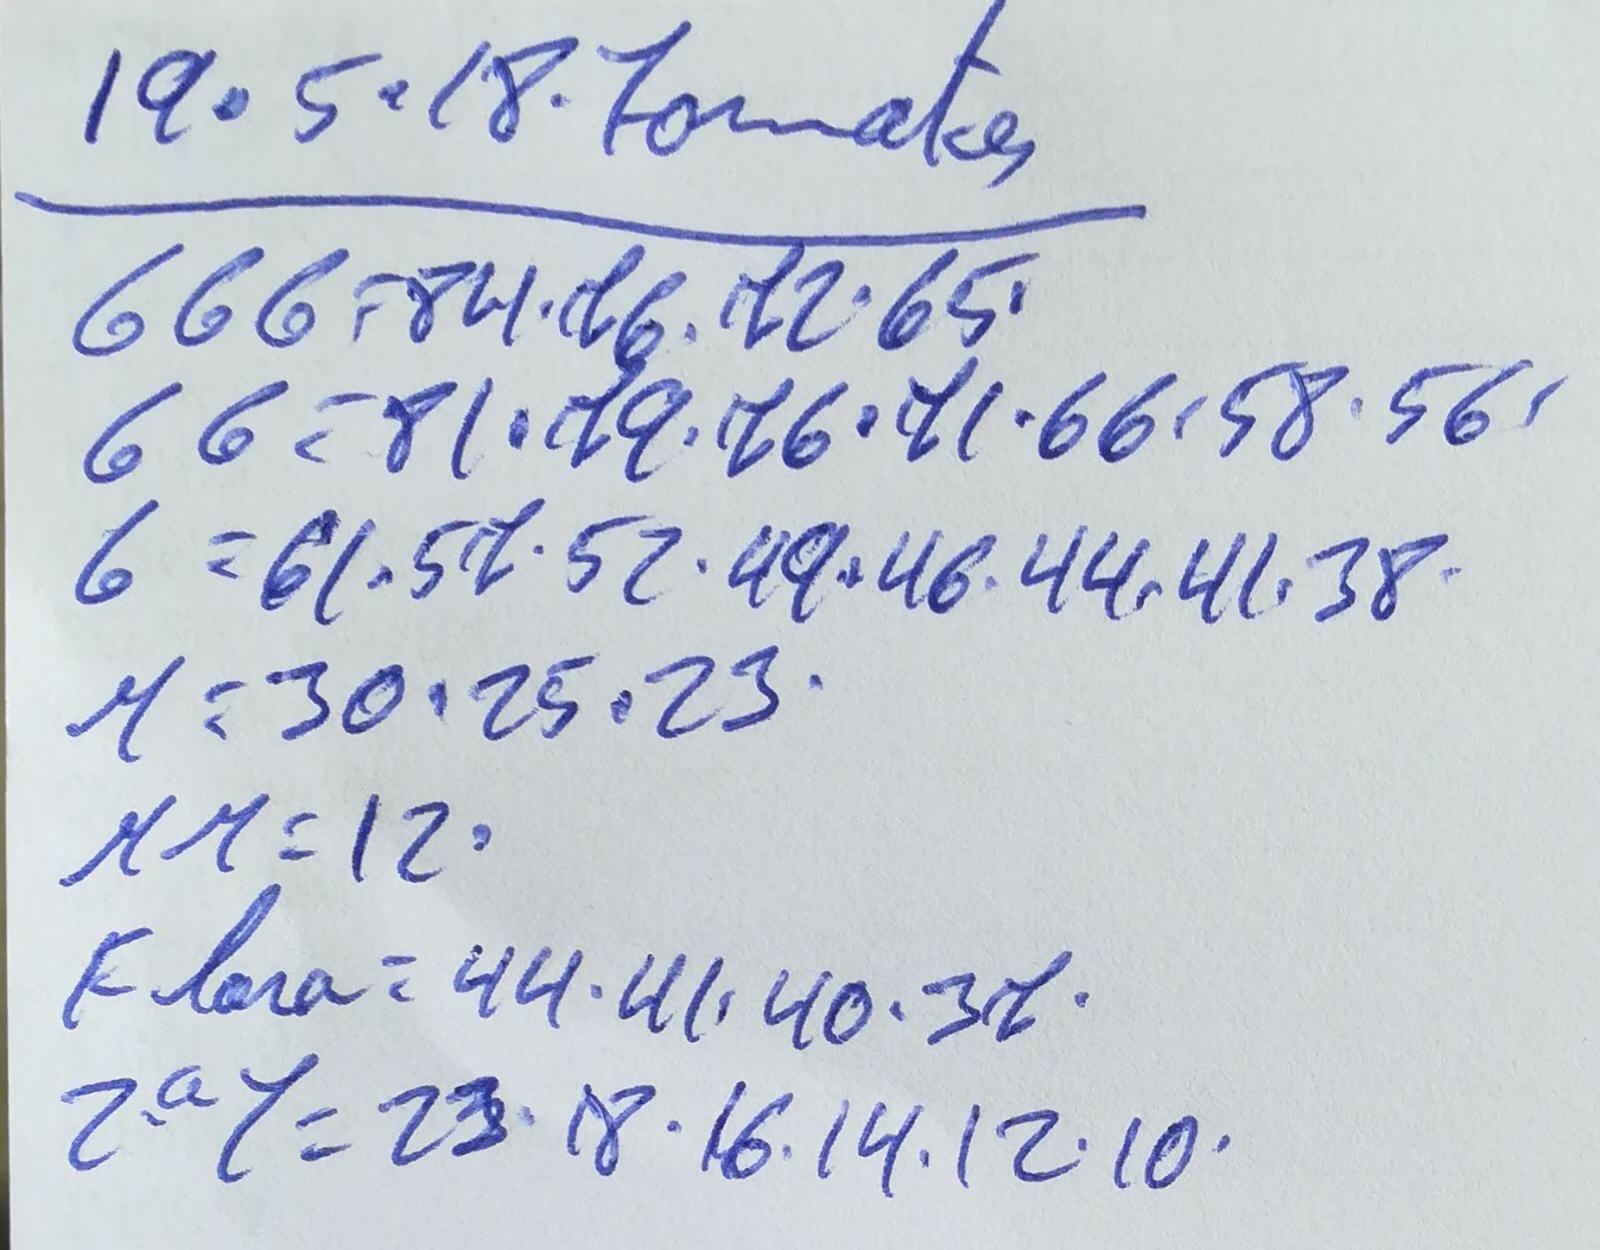 19.5.18. Tomates
666=84.76.72.65.
66=81.79.76.71.66.58.56.
6=61.57.52.49.46.44.41.38.
M=30.25.23.
MM=12.
F lora=44.41.40.37.
2.ª Y=23.18.16.14.12.10.